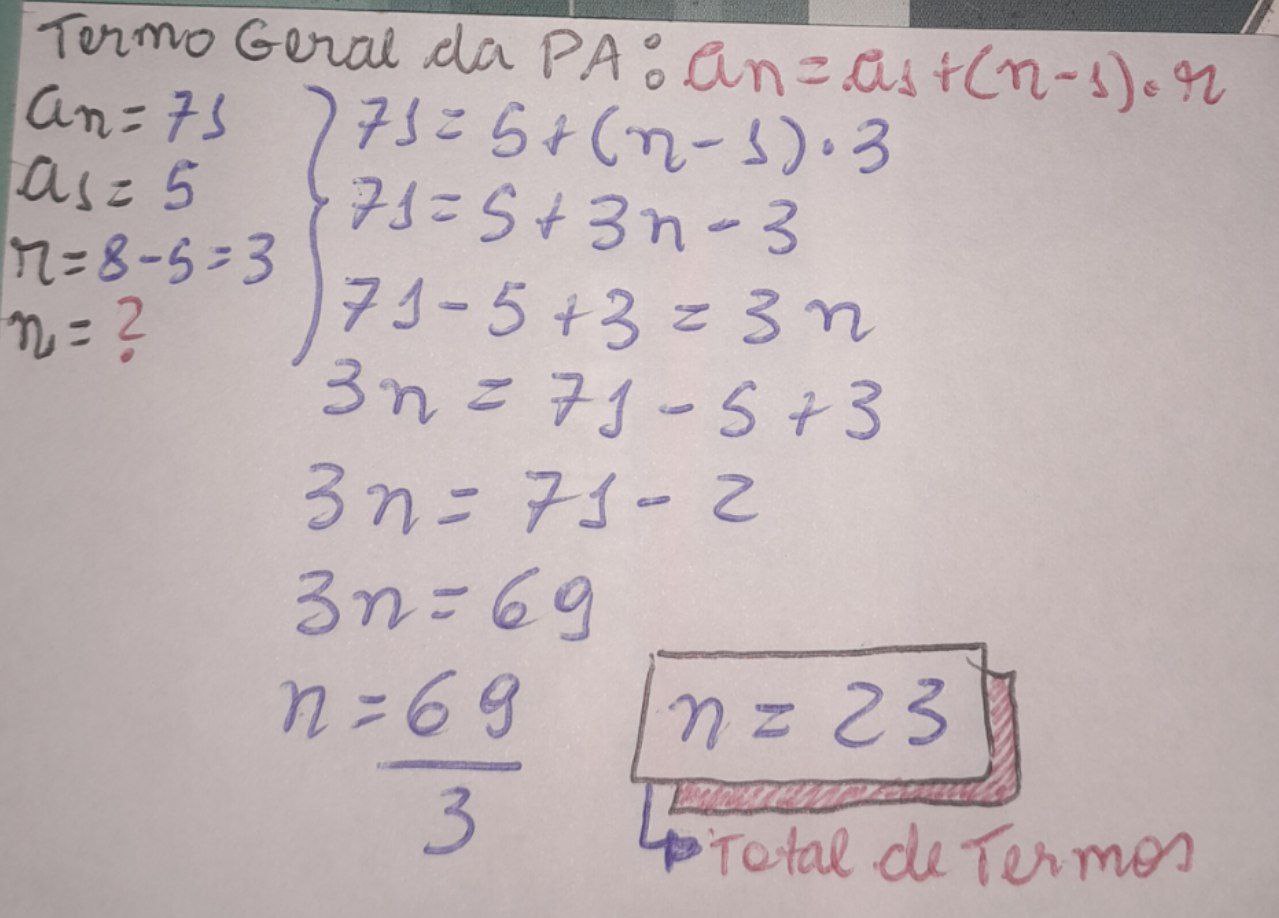 Termo Geral da PA: an = a1 + (n - 1) . r
an = 71
a1 = 5
r = 8 - 5 = 3
n = ?
71 = 5 + (n - 1) . 3
71 = 5 + 3n - 3
71 - 5 + 3 = 3n
3n = 71 - 5 + 3
3n = 71 - 2
3n = 69
n = 69
3
n = 23
Total de Termos